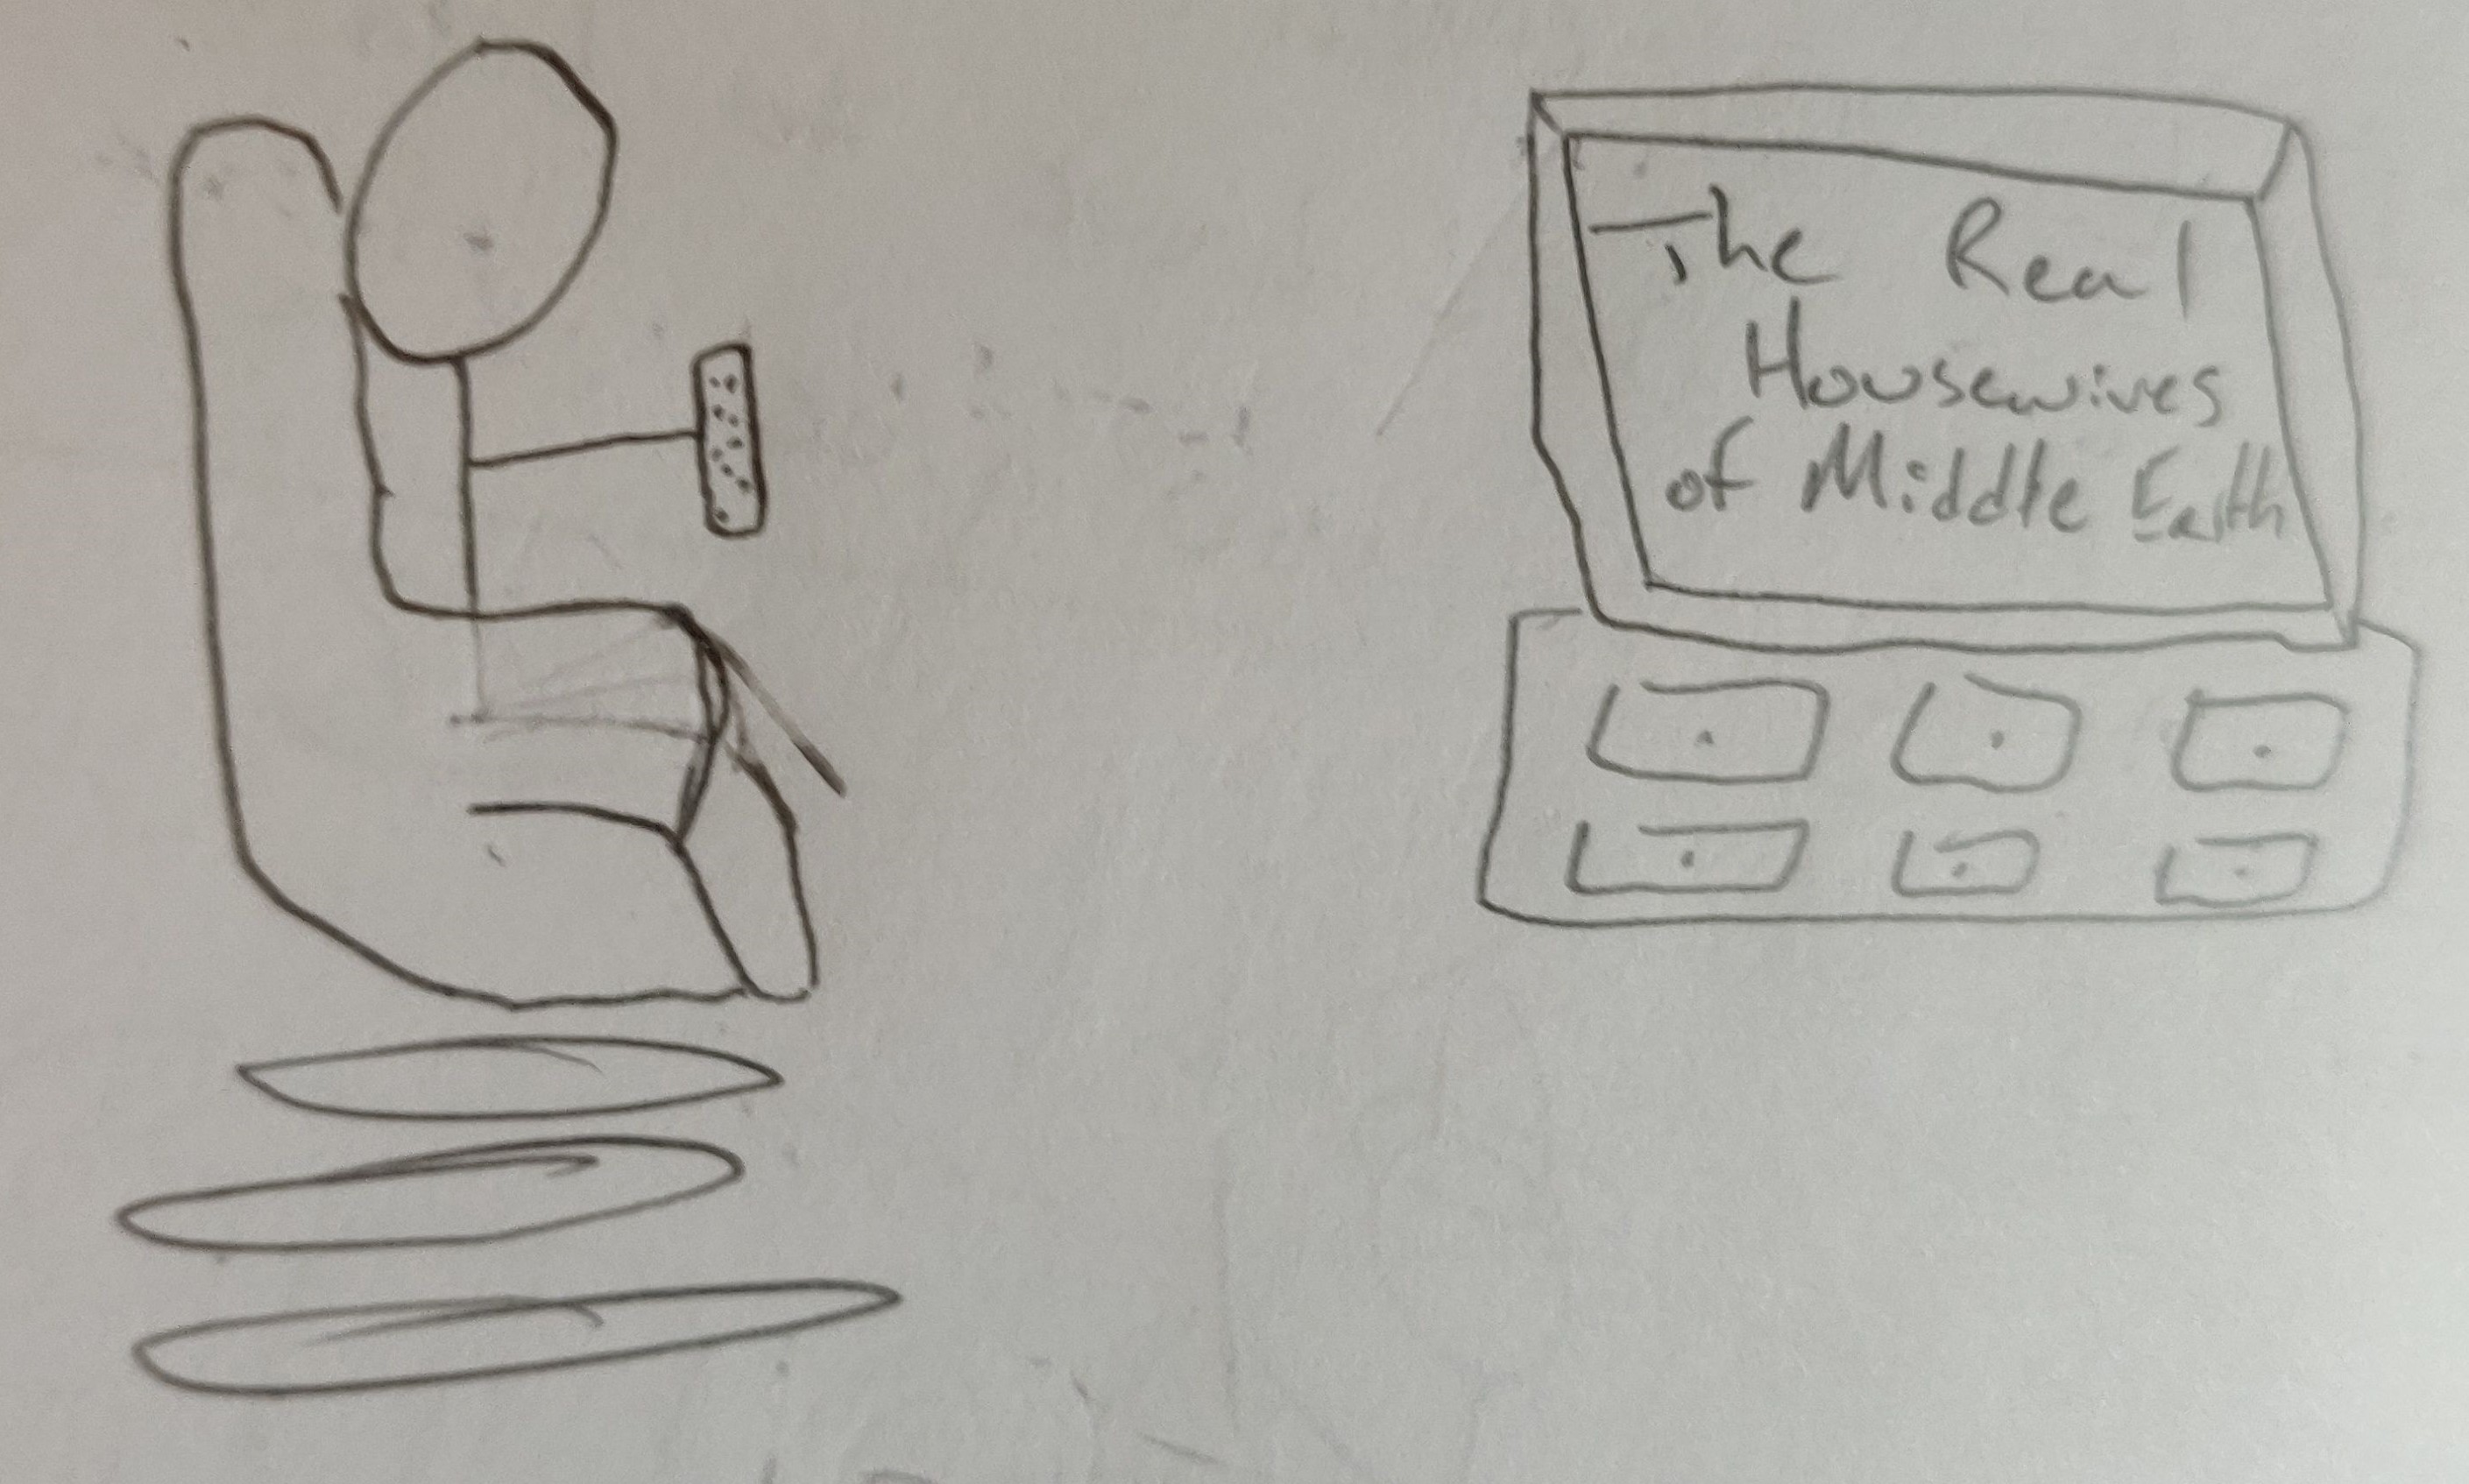 The Real
Housewives
of Middle Earth